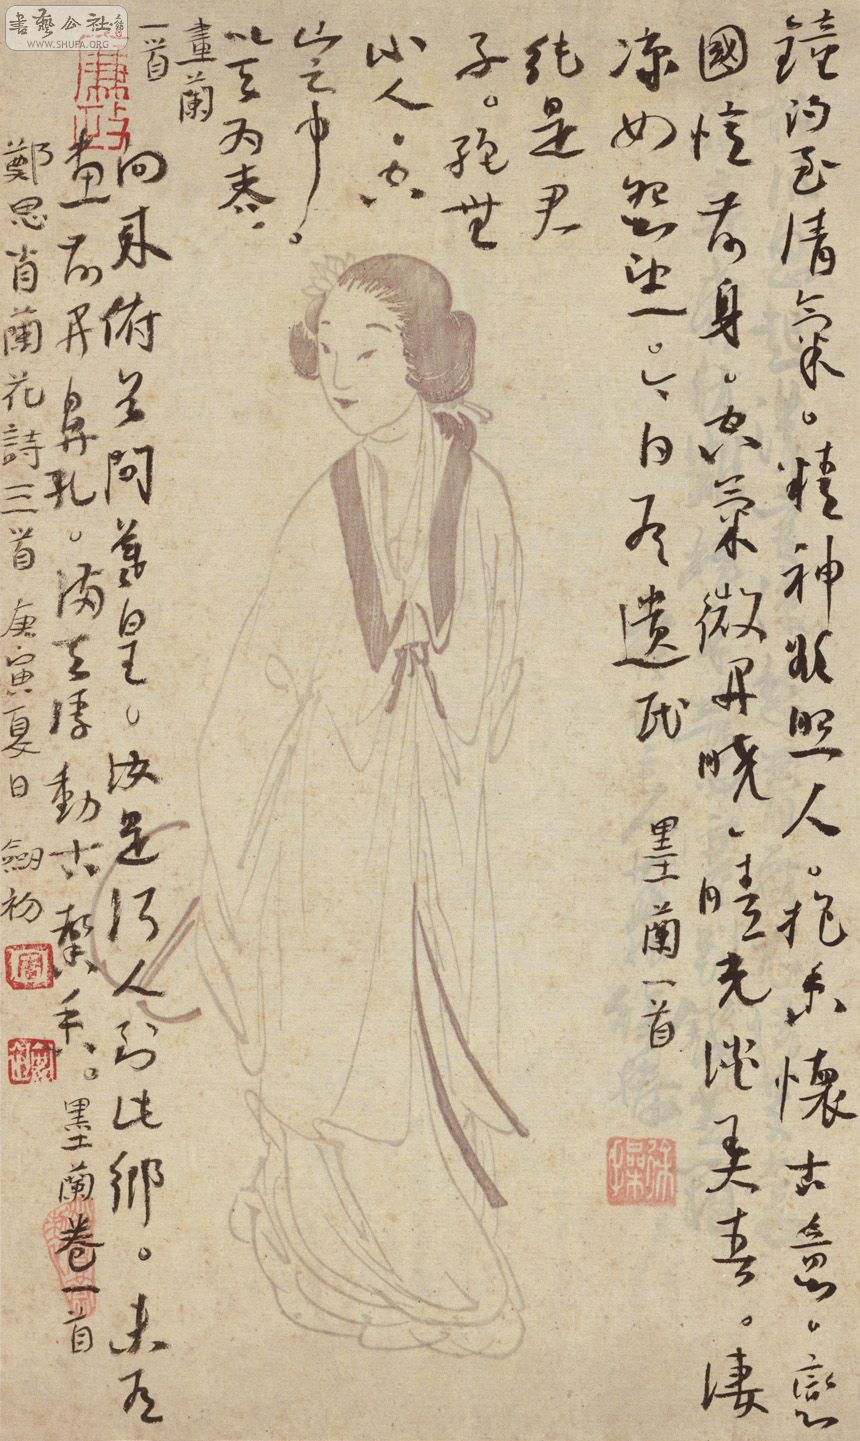 鐘得至清氣。精神欲照人。抱香懷古意。戀
國憶前身。空氣微開曉。晴光淡弄春。淒
涼如怨望。今日有遺民 墨蘭一首
純是君
子。絕無
小人。空
山之中。
以天為春。
畫蘭
一首
向來俯首問羲皇。汝是何人到此鄉。未有
畫前開鼻孔。滿天浮動古馨香。墨蘭卷一首
鄭思肖蘭花詩三首 庚寅夏日 劒初
書藝公社
WWW.SHUFA.ORG